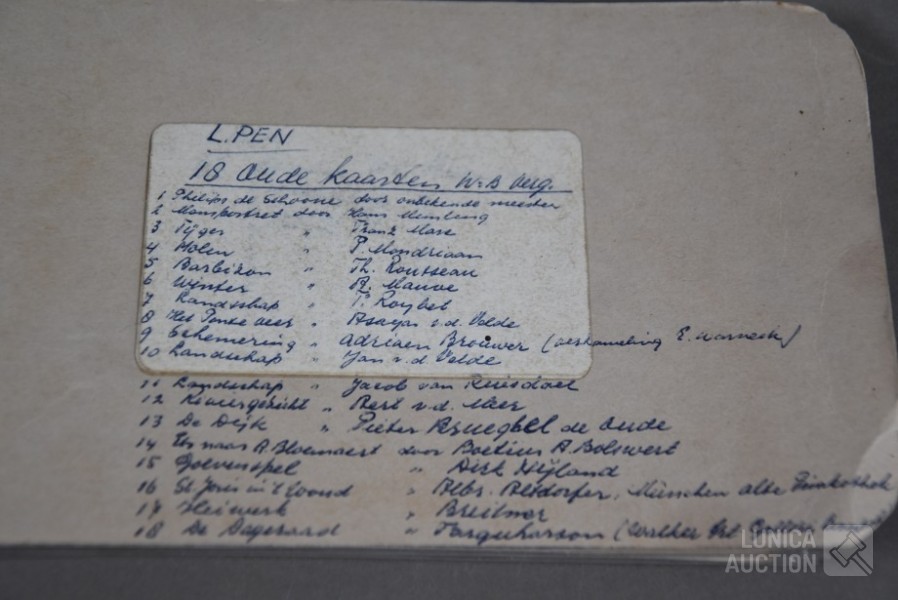 L. PEN
18 Oude kaarten W.B Verg.
1 Philips de Schoone door onbekende meester
2 Mansportret door Hans Memling
3 Tijger " Franz Marc
4 Molen " P. Mondriaan
5 Barbizon " Th. Rousseau
6 Winter " A. Mauve
7 Landschap " F. Roybet
8 Het Ponte veer " Esayas v.d. Velde
9 Schemering " Adriaen Brouwer (verzameling E. Warneck)
10 Landschap " Jan v.d Velde
11 Landschap " Jacob van Ruisdael
12 Riviergezicht " Aert v.d. Meer
13 De Dijk " Pieter Brueghel de Oude
14 naar A. Bloemaert door Boetius A. Bolswert
15 Boevenspel " Dirk Nijland
16 St. Joris in 't woud " Albr. Altdorfer, München alte Pinakothek
17 Heiwerk " Breitner
18 De Dageraad " Farquharson (Walther Art Gallery
LUNICA
AUCTION